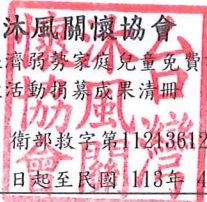 沐風關懷協會
濟弱勢家庭兒童免費
活動捐募成果清冊
衛部救字第11213612
日起至民國 113年 4
台灣
沐風關
懷協會